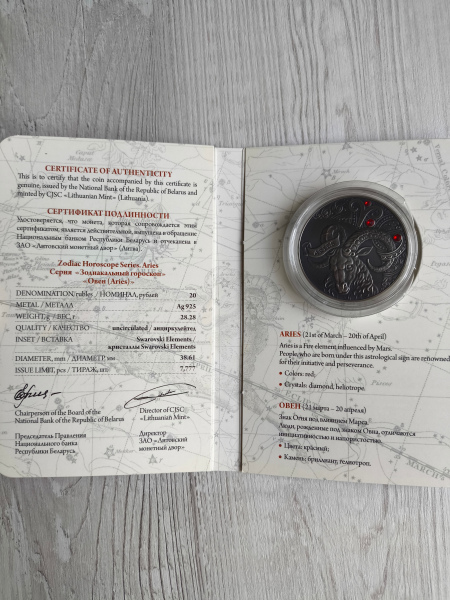 CERTIFICATE OF AUTHENTICITY
This is to certify that the coin accompanied by this certificate is
genuine, issued by the National Bank of the Republic of Belarus and
minted by CJSC «Lithuanian Mint» (Lithuania).
СЕРТИФИКАТ ПОДЛИННОСТИ
Удостоверяется, что монета, которая сопровождается этим
сертификатом, является действительной, выпущена в обращение
Национальным банком Республики Беларусь и отчеканена в
ЗАО «Литовский монетный двор» (Литва).
Zodiac Horoscope Series. Aries
Серия «Зодиакальный гороскоп»
«Овен (Aries)»
DENOMINATION, rubles / НОМИНАЛ, рублей 20
METAL / МЕТАЛЛ Ag 925
WEIGHT, g / ВЕС, г 28.28
QUALITY / КАЧЕСТВО uncirculated / анциркулейтед
INSET / ВСТАВКА Swarovski Elements /
кристаллы Swarovski Elements
DIAMETER, mm / ДИАМЕТР, мм 38.61
ISSUE LIMIT, pcs / ТИРАЖ, шт. 7,777
Chairperson of the Board of the
National Bank of the Republic of Belarus
Председатель Правления
Национального банка
Республики Беларусь
Director of CJSC
«Lithuanian Mint»
Директор
ЗАО «Литовский
монетный двор»
ARIES (21st of March – 20th of April)
Aries is a Fire element, influenced by Mars.
People, who are born under this astrological sign are renowned
for their initiative and perseverance.
• Colors: red;
• Crystals: diamond, heliotrope.
ОВЕН (21 марта – 20 апреля)
Знак Огня под влиянием Марса.
Люди, рожденные под знаком Овна, отличаются
инициативностью и напористостью.
• Цвета: красный;
• Камень: бриллиант, гелиотроп.